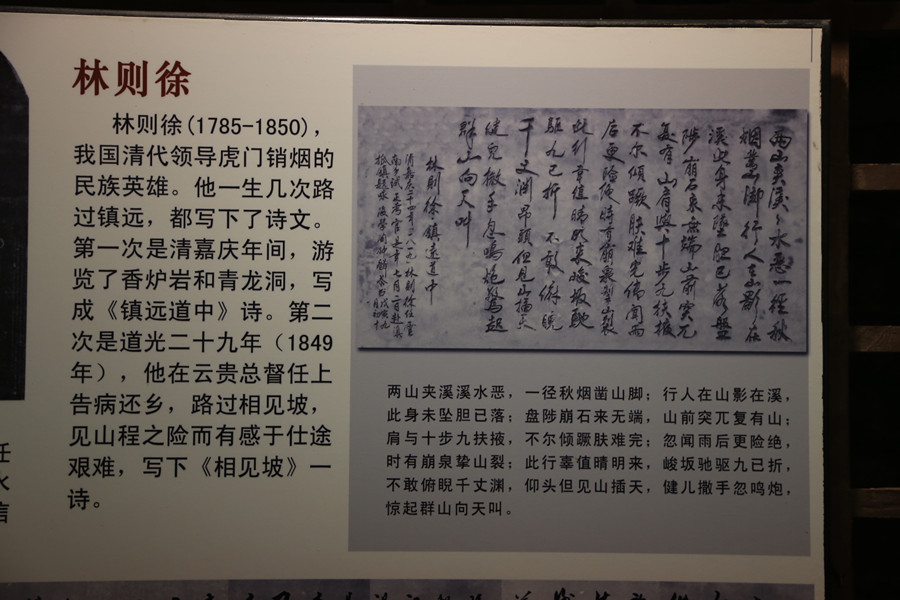 林则徐
林则徐(1785-1850)，
我国清代领导虎门销烟的
民族英雄。他一生几次路
过镇远，都写下了诗文。
第一次是清嘉庆年间，游
览了香炉岩和青龙洞，写
成《镇远道中》诗。第二
次是道光二十九年（1849
年），他在云贵总督任上
告病还乡，路过相见坡，
见山程之险而有感于仕途
艰难，写下《相见坡》一
诗。
两山夹溪溪水恶一径秋
烟凿山脚行人在山影在
溪此身未坠胆已落盘
陟崩石来无端山前突兀
复有山肩舆十步九扶掖
不尔倾蹶肤难完传闻雨
后更险绝时有崩泉掣山裂
此行幸值晴明来峻坂驰
驱九已折不敢俯窥
千丈渊昂头但见山插天
健儿撒手忽鸣炮惊起
群山向天叫
林则徐镇远道中
两山夹溪溪水恶，一径秋烟凿山脚；行人在山影在溪，
此身未坠胆已落；盘陟崩石来无端，山前突兀复有山；
肩与十步九扶掖，不尔倾蹶肤难完；忽闻雨后更险绝，
时有崩泉挚山裂；此行辜值晴明来，峻坂驰驱九已折，
不敢俯睨千丈渊，仰头但见山插天，健儿撒手忽鸣炮，
惊起群山向天叫。
任
水
信